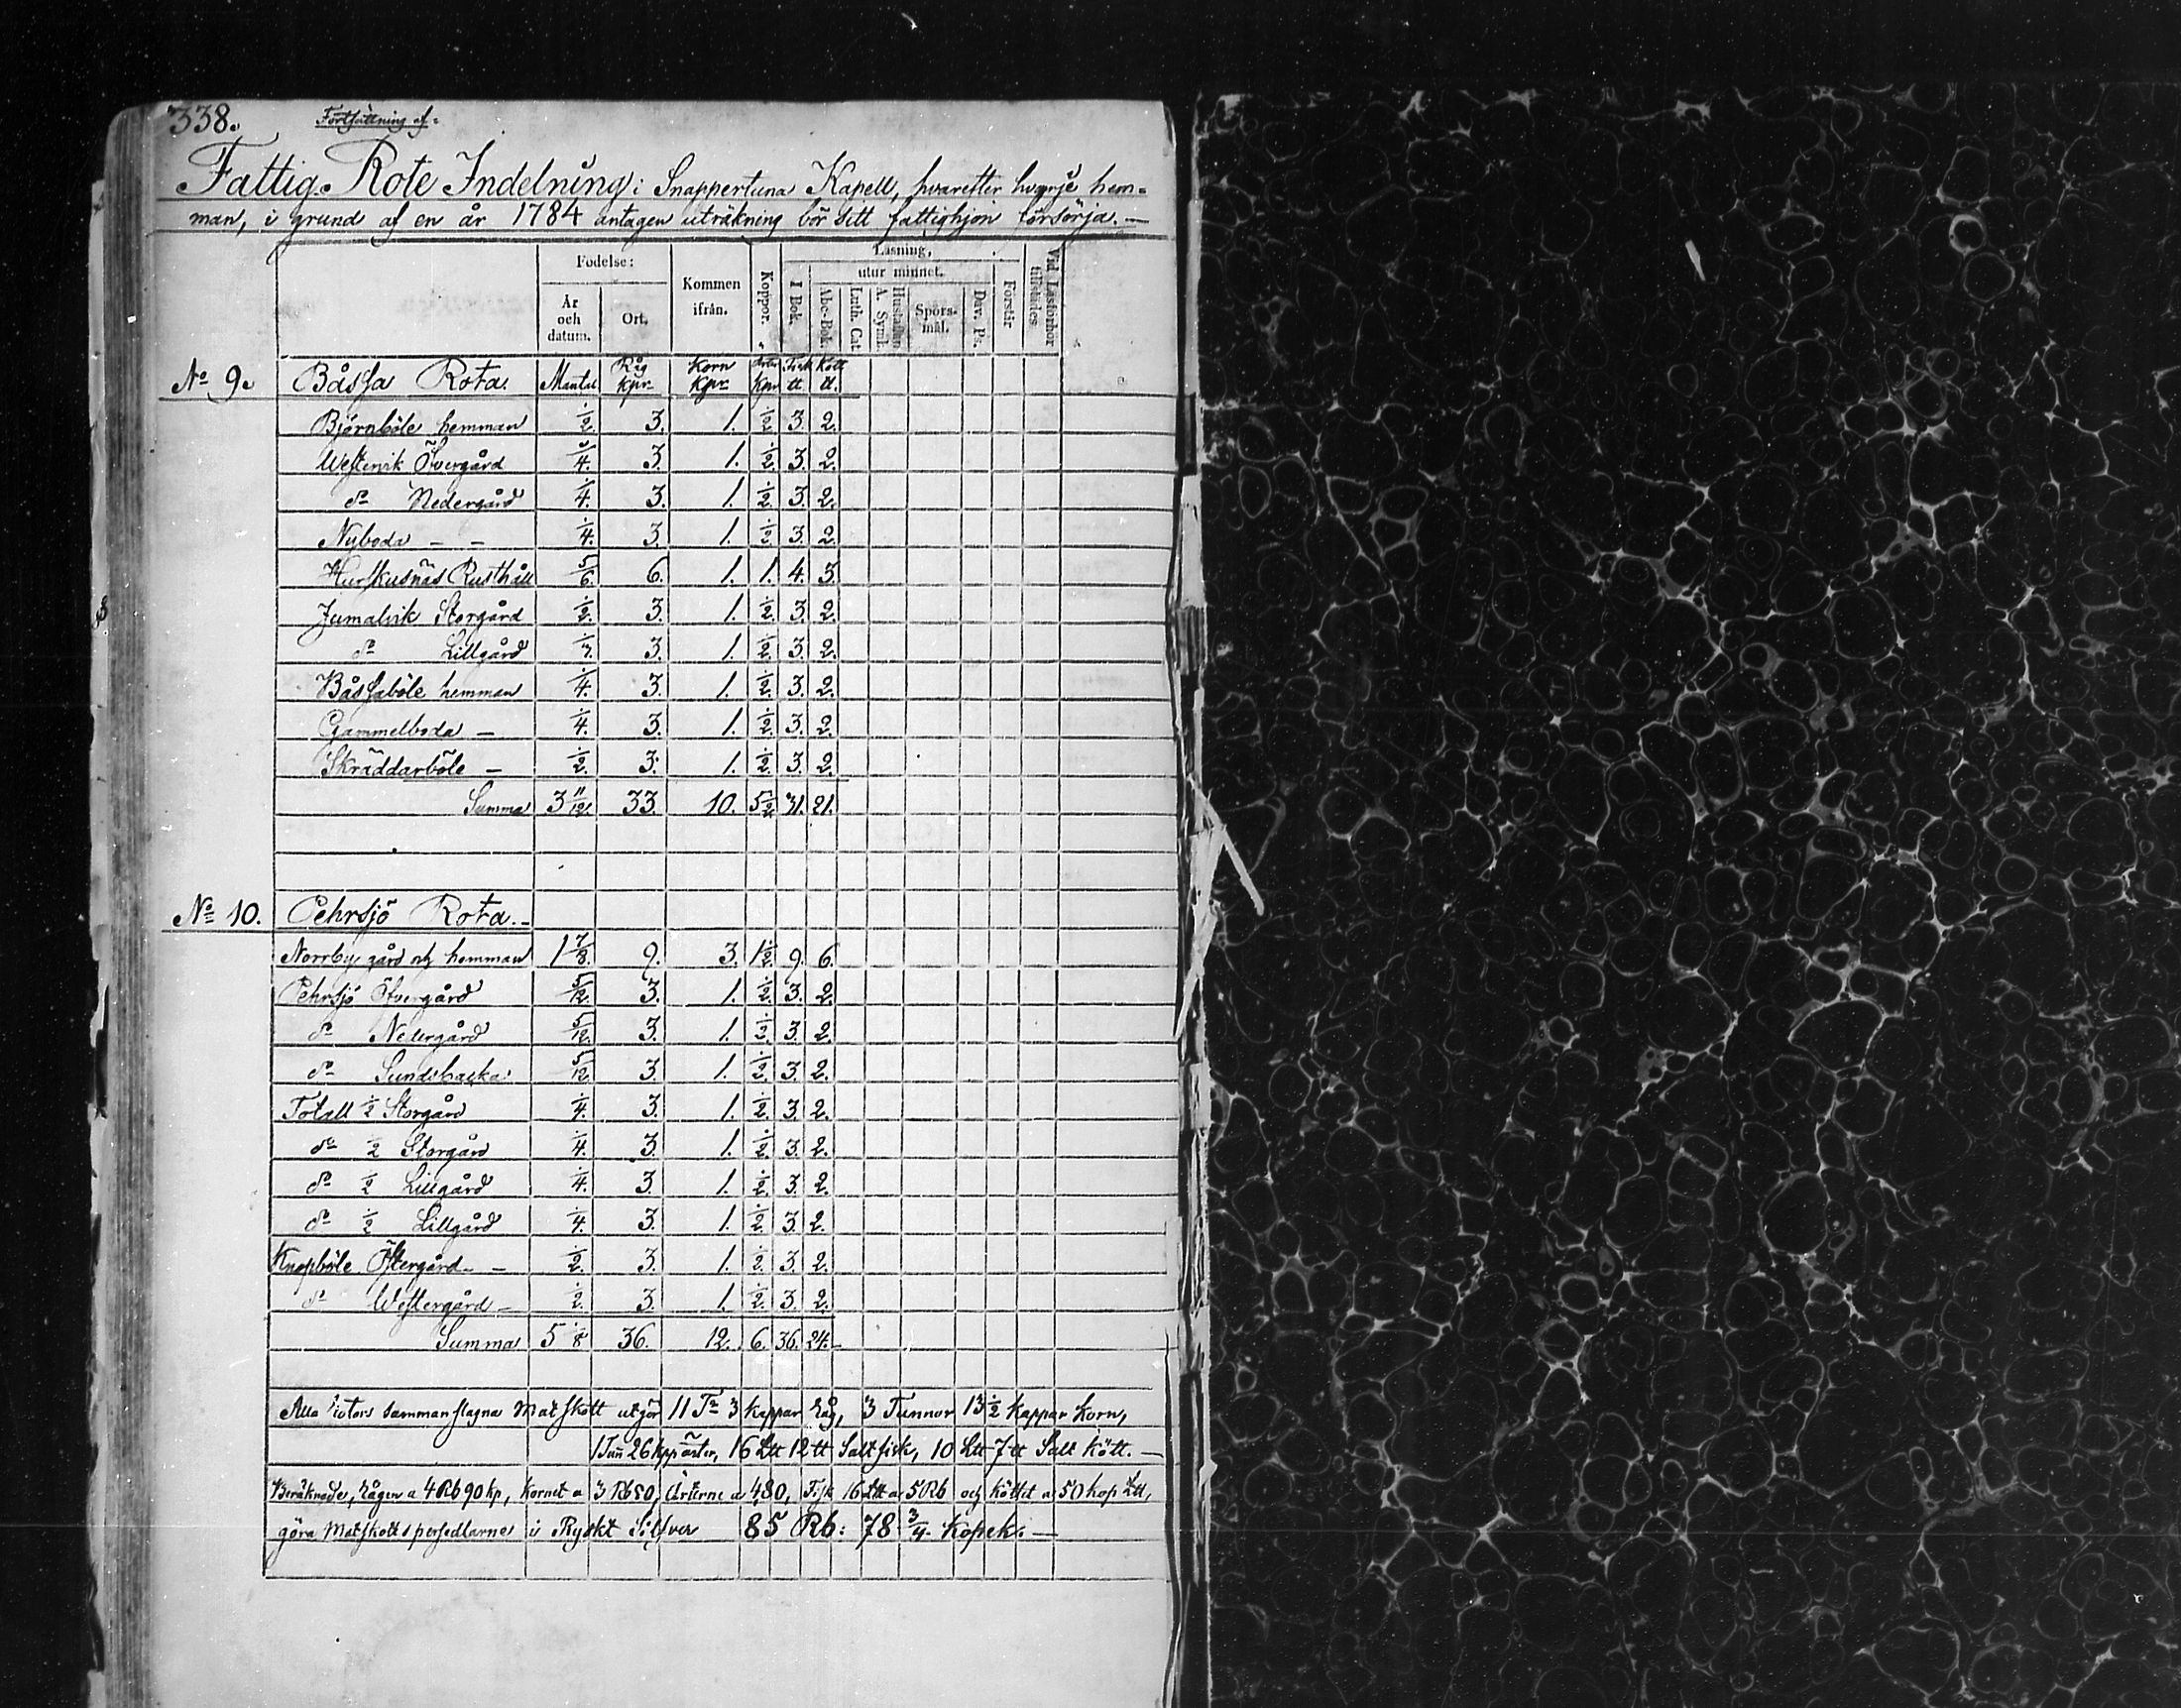 338.
Fortsättning af:
Fattig-Rote Indelning i Snappertuna Kapell, hvarefter hvarje hem-
man, i grund af en år 1784 antagen uträkning bör sitt fattighjon försörja. —
Födelse: År och datum. Ort. Kommen ifrån. Koppor. Läsning, I Bok. utur minnet. Abc-Bok. Luth. Cat. A. Symb. Hustaflan Spörs-mål. Dav. Ps. Förstår Vid Läsförhör tillstädes
No 9. Båssa Rota. Mantal Råg kpr. Korn kpr. Ärter kpr Fisk tt. Kött tt.
Björnböle hemman 1/2. 3. 1. 1/2. 3. 2.
Westervik Öfvergård 1/4. 3. 1. 1/2. 3. 2.
do Nedergård 1/4. 3. 1. 1/2. 3. 2.
Nyboda — — 1/4. 3. 1. 1/2. 3. 2.
Hurskusnäs Rusthåll 5/6. 6. 1. 1. 4. 3.
Jumalvik Storgård 1/2. 3. 1. 1/2. 3. 2.
do Lillgård 3. 1. 1/2. 3. 2.
Båssaböle hemman 1/4. 3. 1. 1/2. 3. 2.
Gammelboda — 1/4. 3. 1. 1/2. 3. 2.
Skräddarböle — 1/2. 3. 1. 1/2. 3. 2.
Summa 3 11/12. 33. 10. 5 1/2 31. 21.
No 10. Pehrsjö Rota. —
Norrby gård och hemman 1 7/8. 9. 3. 1 1/2. 9. 6.
Pehrsjö Öfvergård 5/12. 3. 1. 1/2. 3. 2.
do Nedergård 5/12. 3. 1. 1/2. 3. 2.
do Sundsbacka 5/12. 3. 1. 1/2. 3. 2.
Totall 1/2 Storgård 1/4. 3. 1. 1/2. 3. 2.
do 1/2 Storgård 1/4. 3. 1. 1/2. 3. 2.
do 1/2 Lillgård 1/4. 3. 1. 1/2. 3. 2.
do 1/2 Lillgård 1/4. 3. 1. 1/2. 3. 2.
Knopböle Östergård — 1/2. 3. 1. 1/2. 3. 2.
do Westergård — 1/2. 3. 1. 1/2. 3. 2.
Summa 5 1/8 36. 12. 6. 36. 24.
Alla rotors sammanslagna Matskott utgör 11 Tr 3 kappar råg, 3 Tunnor 13 1/2 kappar korn,
1 Tun 26 kpp ärter, 16 Ltt 12 tt Saltfisk, 10 Ltt 7 tt Salt kött. —
Beräknade, rågen a 4 Rb 90 kp, kornet a 3 Rb 80, Ärterne a 4,80, Fisk 16 Ltt a 5 Rb och köttet a 50 kop Ltt,
göra Matskotts persedlarne i Ryskt Silfver 85 Rb: 78 3/4. Kopek. —